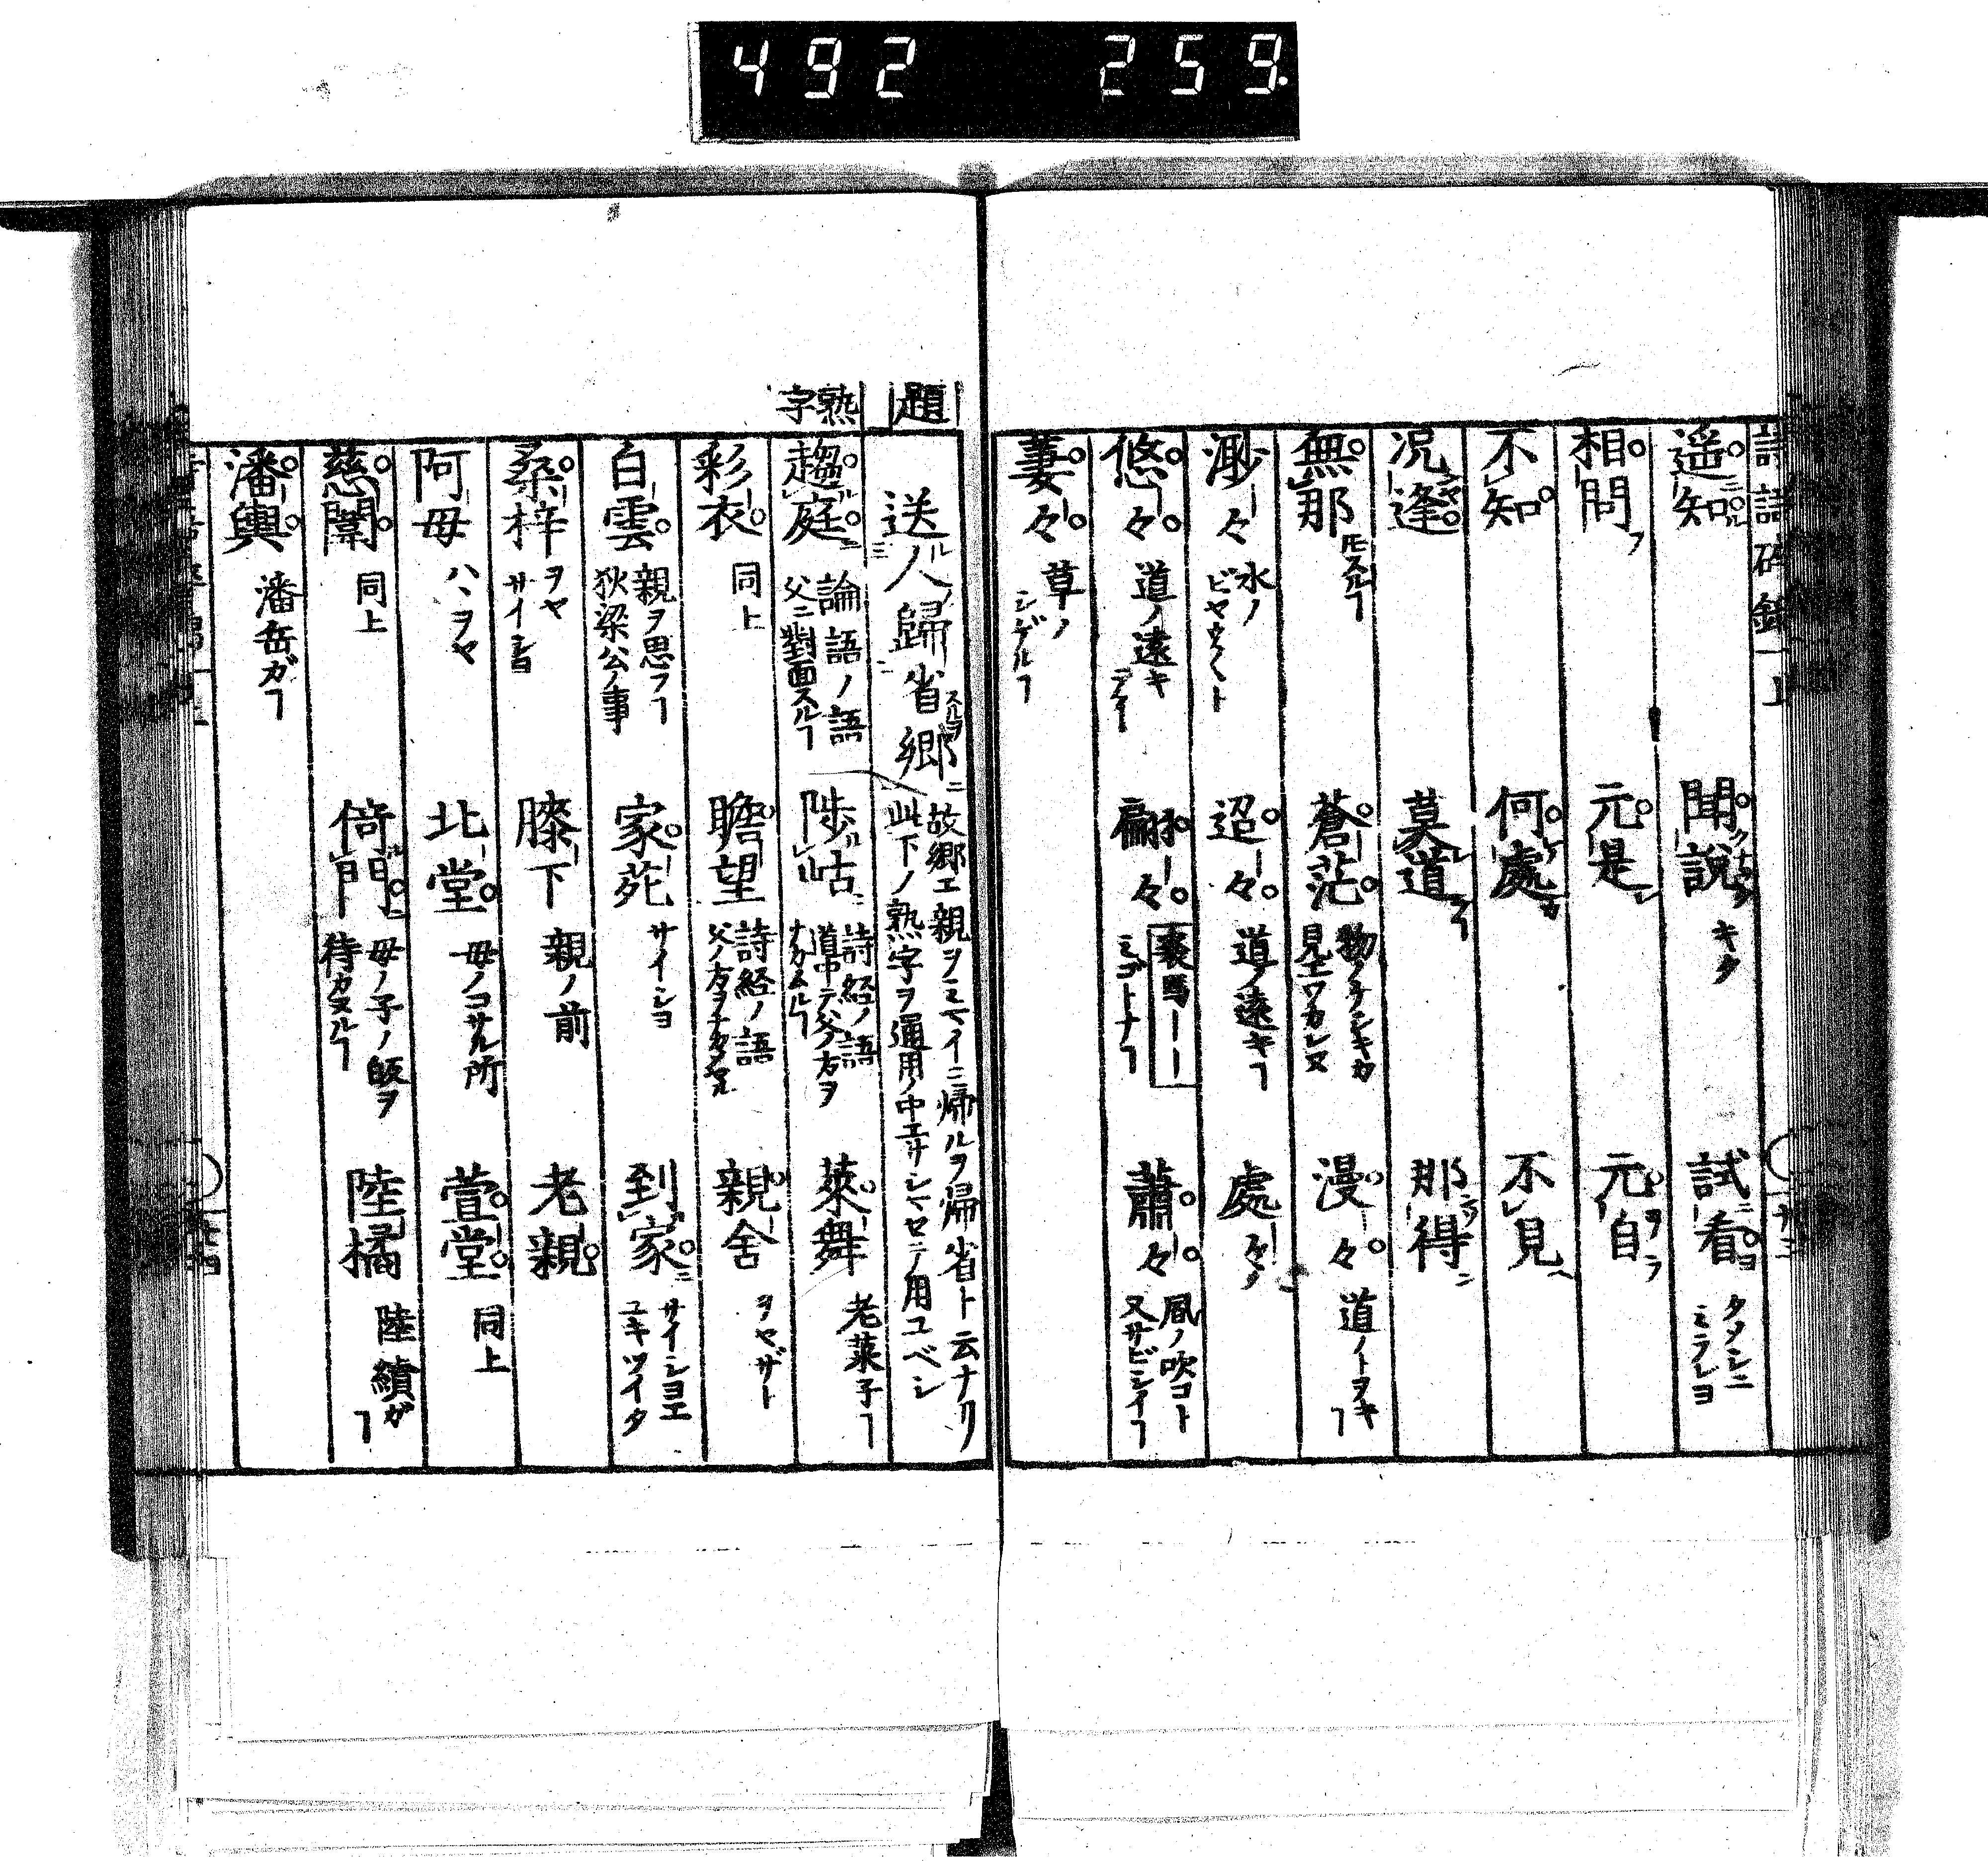 492 259
遥知 聞説 キク 試看 タメシニミラレヨ
相問 元是 元自
不知 何處 不見
况逢 莫道 那得
無那 蒼茫 漫々 道ノトヲキヿ
渺々 水ノビヤウ〱ト 迢々 道ノ遠キヿ 處々
悠々 道ノ遠キ 翩々 裘馬 ミゴトナヿ 蕭々 風ノ吹コト又サビシイヿ
萋々 草ノシゲルヿ
題
送人歸省郷 故郷エ親ヲミマイニ帰ルヲ帰省ト云ナリ
此下ノ熟字ヲ通用ノ中エサシマセテ用ユベシ
熟字
趨庭 論語ノ語父ニ對面スルヿ 陟岵 詩経ノ語道中テ父ノ方ヲナガムルヿ 萊舞 老萊子ヿ
彩衣 同上 瞻望 詩経ノ語 親舍 ヲヤザト
白雲 親ヲ思フヿ狄梁公ノ事 家苑 サイシヨ 到家 サイシヨエユキツイタ
桑梓 ヲヤサイシヨ 膝下 親ノ前 老親
阿母 ハヽヲヤ 北堂 母ノコサル所 萱堂 同上
慈闈 同上 倚門 母ノ子ノ皈ヲ待カヌルヿ 陸橘 陸績ガヿ
潘輿 潘岳ガヿ